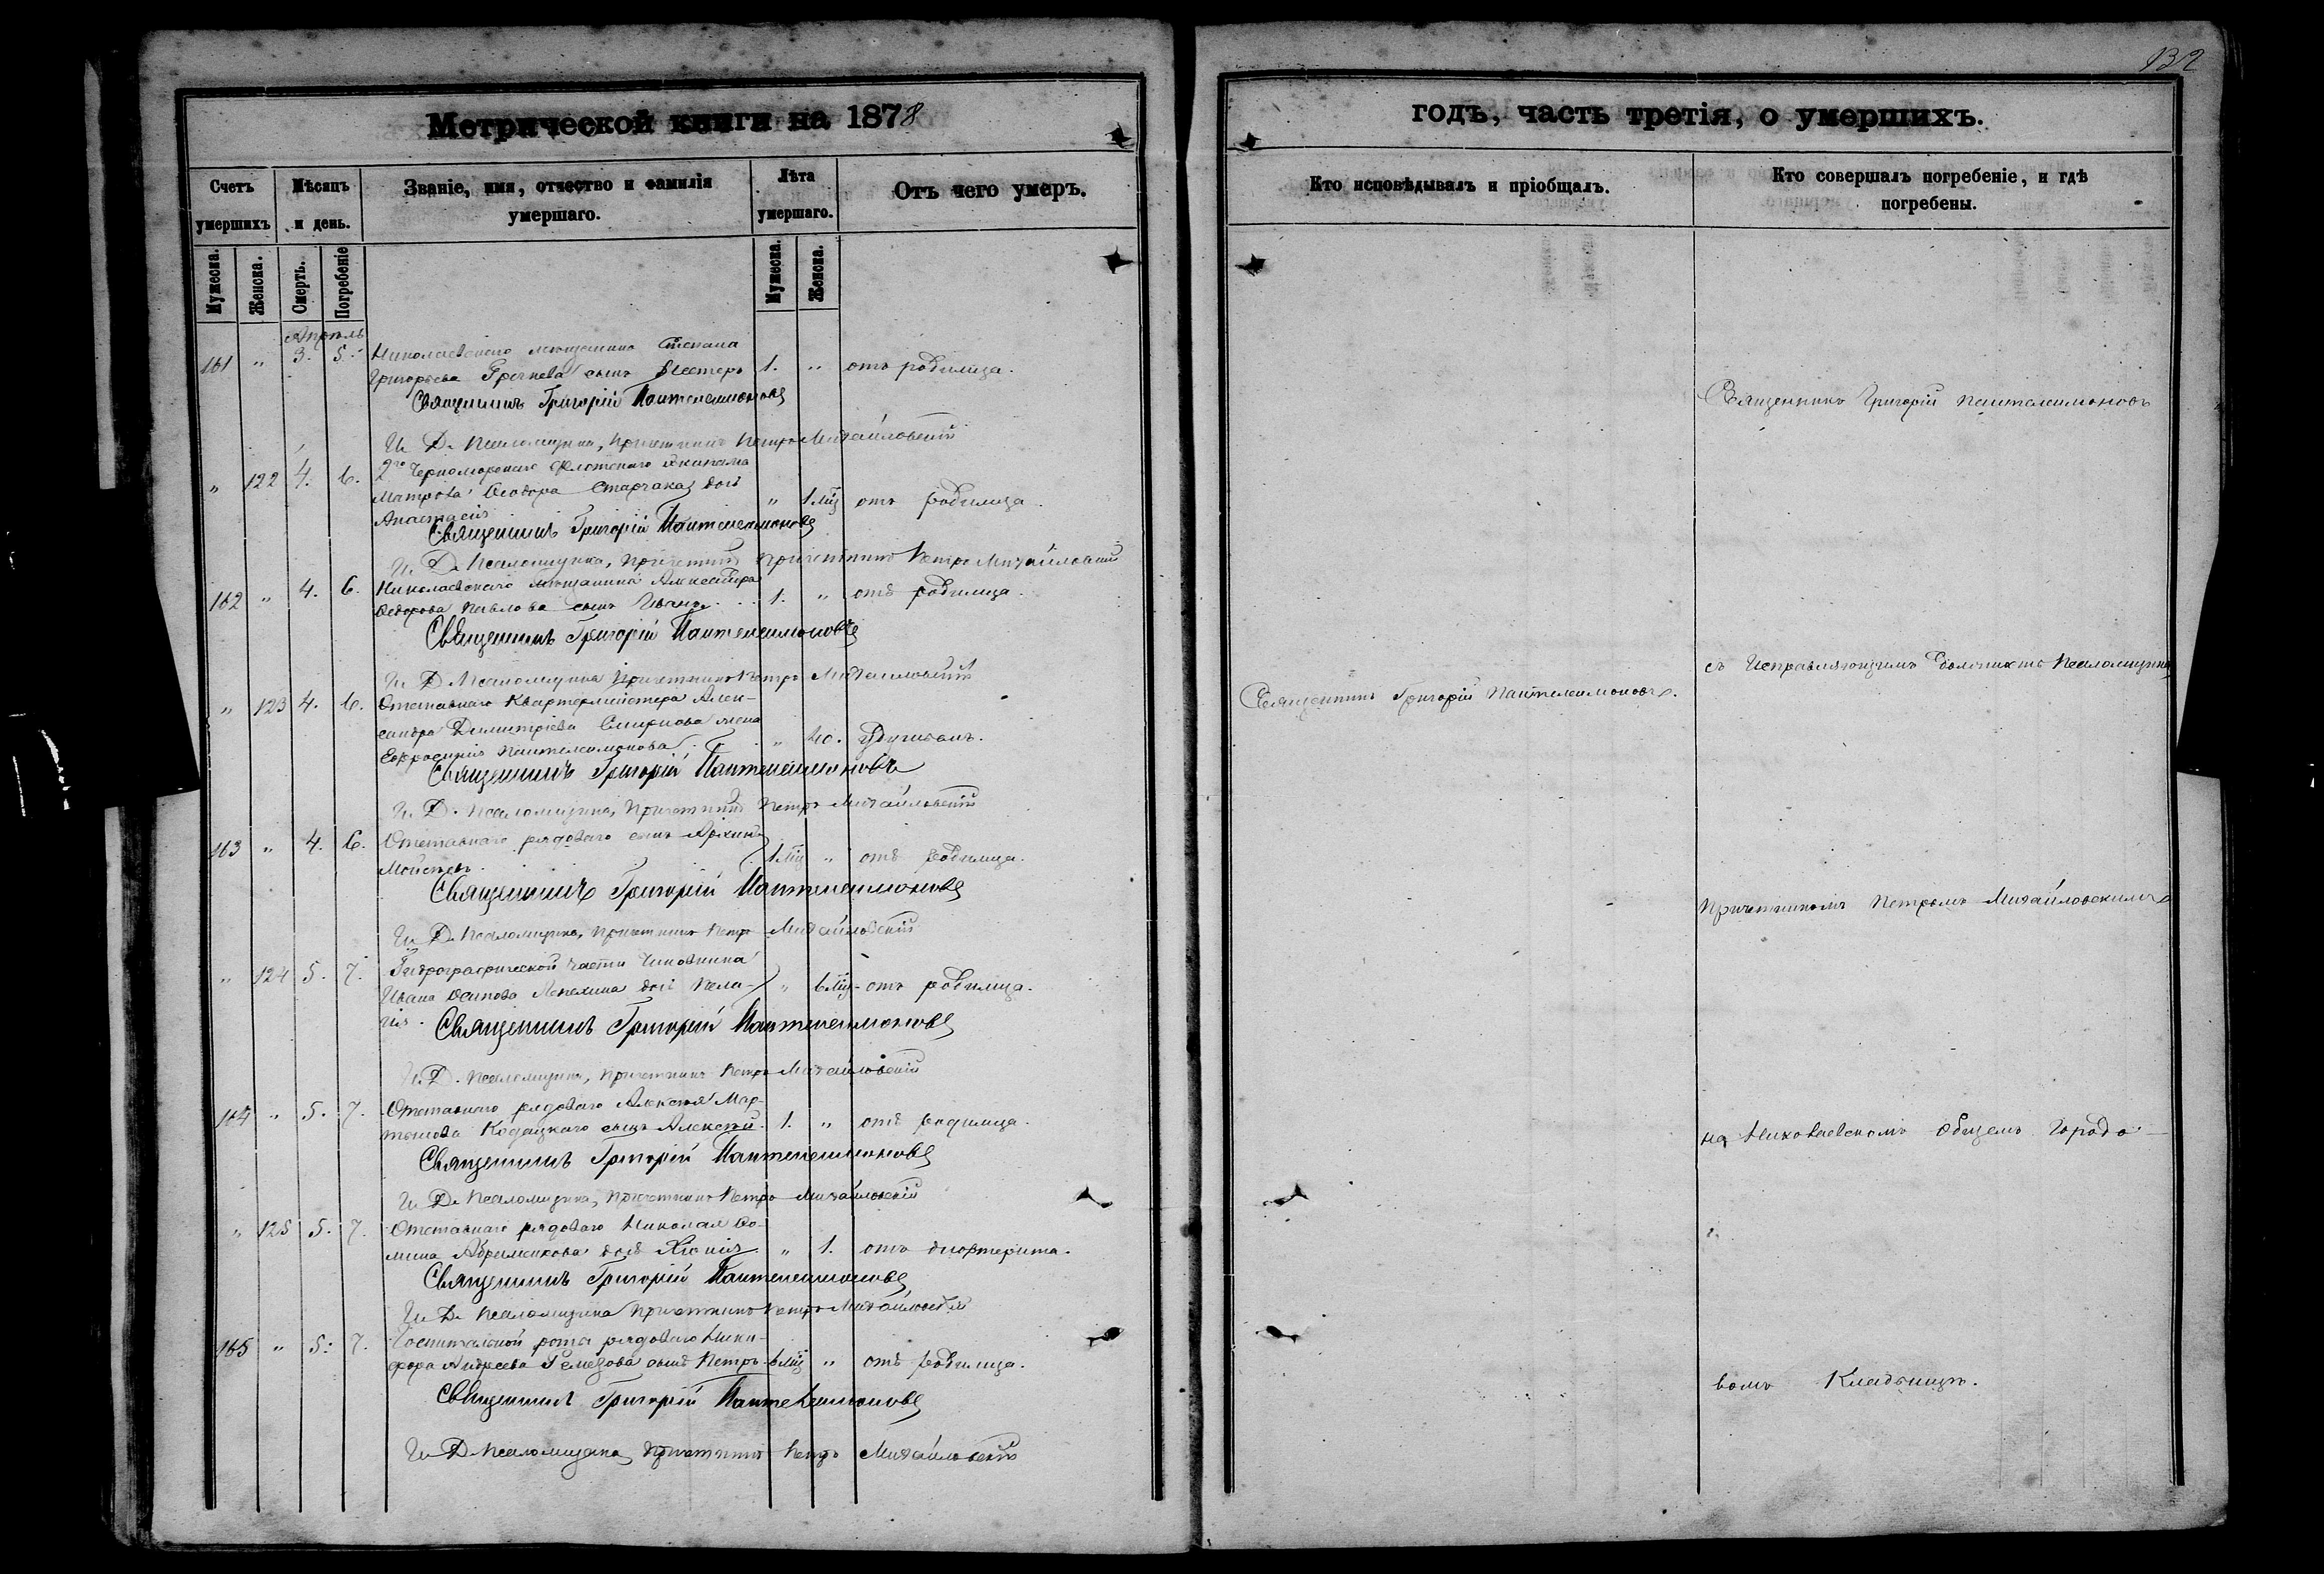 132
Метрической книги на 1878
годъ, часть третія, о умершихъ.
Счетъ умершихъ
Мѣсяцъ и день.
Званіе, имя, отчество и фамилія умершаго.
Лѣта умершаго.
Отъ чего умеръ.
Кто исповѣдывалъ и пріобщалъ.
Кто совершалъ погребеніе, и гдѣ погребены.
Мужеска.
Женска.
Смерть.
Погребеніе
Мужеска.
Женска.
Апрѣль
161 " 3. 5. Николаевскаго мѣщанина Степана
Григорьева Гречнева сынъ Нестеръ 1. " отъ родимца.
Священникъ Григорій Пантелеимоновъ
И. Д. Псаломщика, Причетникъ Петръ Михайловскій
" 122 4. 6. 2го Черноморскаго Флотскаго Экипажа
Матроса Ѳеодора Старчака дочь
Анастасія " 1 мц отъ родимца.
Священникъ Григорій Пантелеимоновъ
И. Д. Псаломщика, Причетникъ Причетникъ Петръ Михайловскій
162 " 4. 6. Николаевскаго мѣщанина Александра
Ѳедорова Павлова сынъ Иванъ 1. " отъ родимца.
Священникъ Григорій Пантелеимоновъ
И. Д. Псаломщика Причетникъ Петръ Михайловскій
" 123 4. 6. Отставнаго Квартермистера Алек-
сандра Димитріева Смирнова жена
Евфросинія Пантелеимонова " 40. Удушіемъ.
Священникъ Григорій Пантелеимоновъ
И. Д. Псаломщика, Причетникъ Петръ Михайловскій
163 " 4. 6. Отставнаго рядоваго сынъ
Моисѣевъ. 1 мц " отъ родимца.
Священникъ Григорій Пантелеимоновъ
И. Д. Псаломщика, Причетникъ Петръ Михайловскій
" 124 5. 7. Гидрографической части Чиновника
Ивана Осипова Лепехина дочь Пела-
гія. " 6 мц. отъ родимца.
Священникъ Григорій Пантелеимоновъ
И. Д. Псаломщика, Причетникъ Петръ Михайловскій
164 " 5. 7. Отставнаго рядоваго Алексѣя Мар-
тынова Кодацкаго сынъ Алексѣй. 1. " отъ родимца.
Священникъ Григорій Пантелеимоновъ
И. Д. Псаломщика, Причетникъ Петръ Михайловскій
" 125 5. 7. Отставнаго рядоваго Николая Ѳо-
мина Абраменкова дочь " 1. отъ дифтерита.
Священникъ Григорій Пантелеимоновъ
И. Д. Псаломщика Причетникъ Петръ Михайловскій
165 " 5. 7. Госпитальной роты рядоваго Ники-
фора Андреева Ремезова сынъ Петръ 6 мц " отъ родимца.
Священникъ Григорій Пантелеимоновъ
И. Д. Псаломщика Причетникъ Петръ Михайловскій
Священникъ Григорій Пантелеимоновъ.
Священникъ Григорій Пантелеимоновъ
съ Исправляющимъ Должность Псаломщика
Причетникомъ Петромъ Михайловскимъ
на Николаевскомъ Общемъ Городо-
вомъ Кладбищѣ.